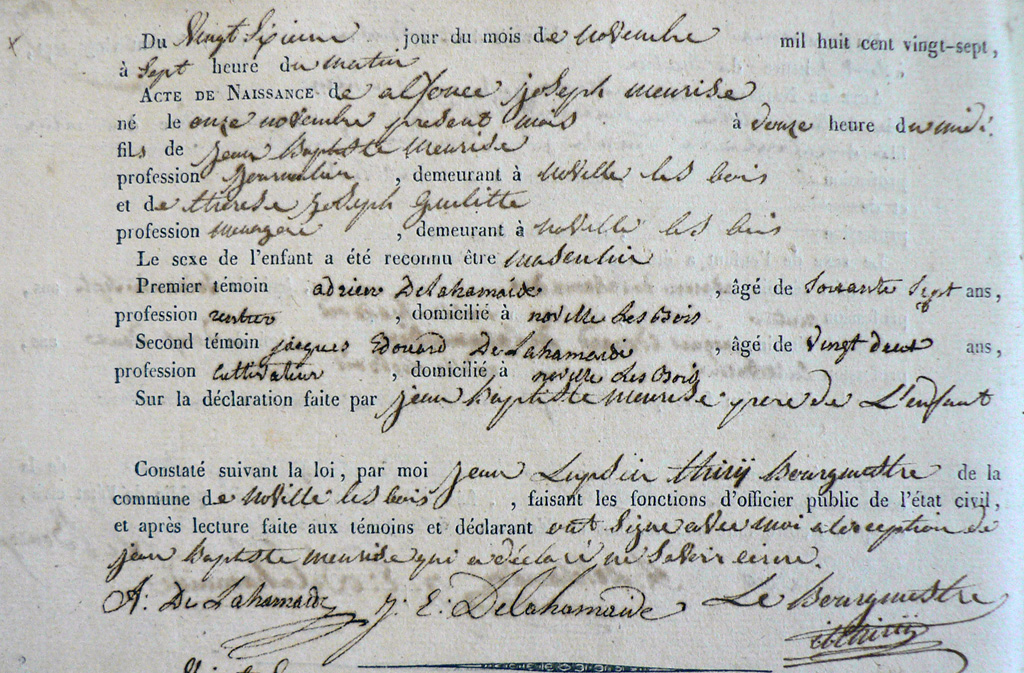 Du Vingt Sixieme jour du mois de novembre mil huit cent vingt-sept,
à Sept heure du matin
ACTE DE NAISSANCE de alfonce joseph meurise
né le onze novembre present mois à douze heure du midi
fils de jean Baptiste meurise
profession journalier, demeurant à noville les bois
et de therese joseph Guilitte
profession menagere, demeurant à noville les bois
Le sexe de l'enfant a été reconnu être masculin
Premier témoin adrien Delahamaide, âgé de Soixante Sept ans,
profession rentier, domicilié à noville Les Bois
Second témoin jacques Edouard De Lahamaide, âgé de Vingt deux ans,
profession Cultivateur, domicilié à noville Les Bois
Sur la déclaration faite par jean baptiste meurise pere de L'enfant
Constaté suivant la loi, par moi jean thirÿ Bourgmestre de la
commune de noville les bois, faisant les fonctions d'officier public de l'état civil,
et après lecture faite aux témoins et déclarant ont Signé avec moi a lexception de
jean Baptiste meurise qui a déclaré ne Savoir ecrire.
A: De Lahamaide J: E: Delahamaide Le Bourgmestre
thirÿ